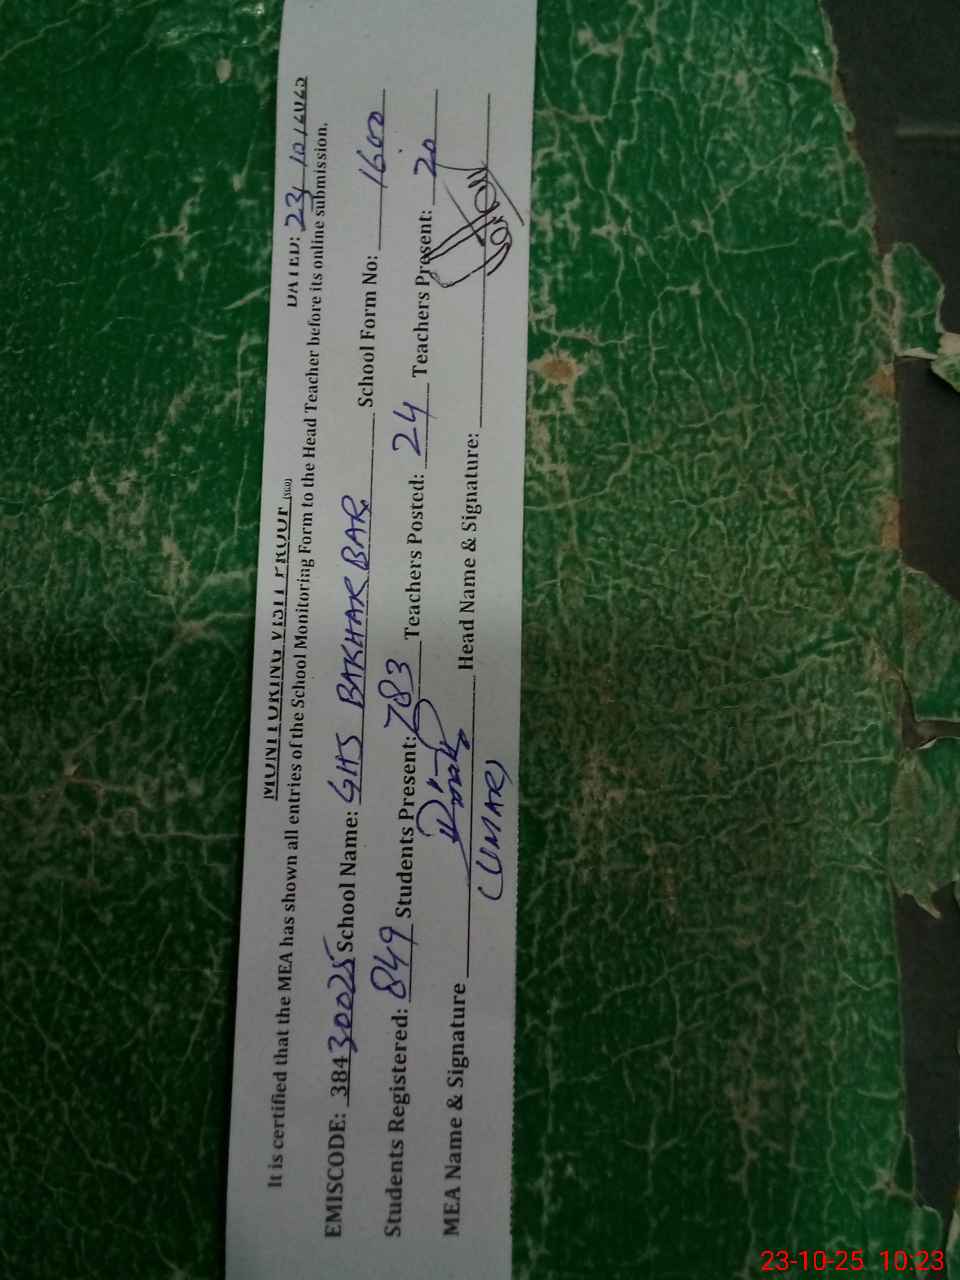 MONITORING VISIT PROOF (SGO) DATED: 23/10/2025
It is certified that the MEA has shown all entries of the School Monitoring Form to the Head Teacher before its online submission.
EMISCODE: 38430025 School Name: GHS BAKHAR BAR School Form No: 1600
Students Registered: 849 Students Present: 783 Teachers Posted: 24 Teachers Present: 20
MEA Name & Signature Head Name & Signature:
(UMAR)
23-10-25 10:23